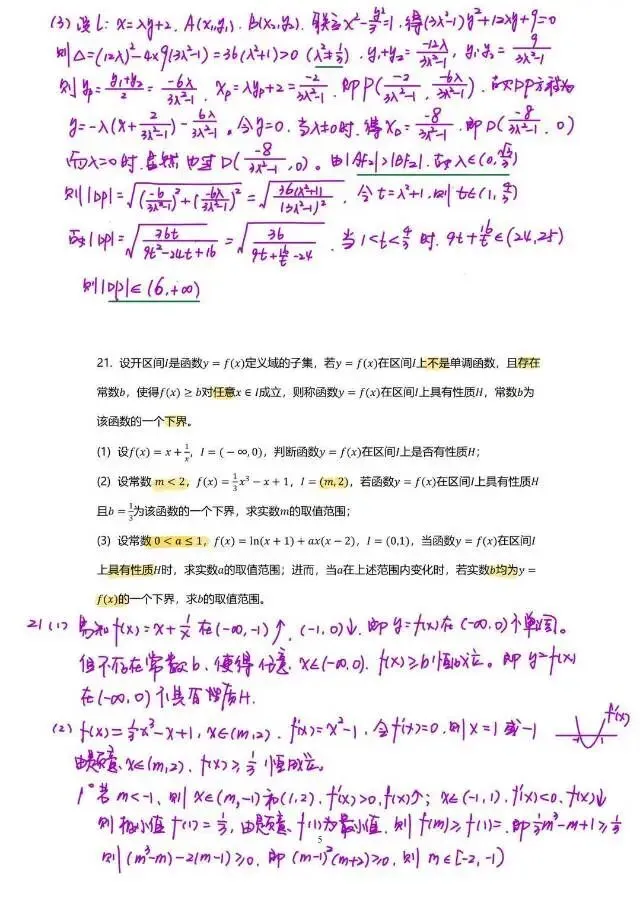 (3) 设L: x=λy+2, A(x₁,y₁), B(x₂,y₂), 联立x²-y²/3=1, 得(3λ²-1)y²+12λy+9=0
则Δ=(12λ)²-4×9(3λ²-1)=36(λ²+1)>0 (λ²≠1/3), y₁+y₂=-12λ/(3λ²-1), y₁y₂=9/(3λ²-1)
则y_P=(y₁+y₂)/2=-6λ/(3λ²-1), x_P=λy_P+2=-2/(3λ²-1), 即P(-2/(3λ²-1), -6λ/(3λ²-1)), 故DP方程为
y=-λ(x+2/(3λ²-1))-6λ/(3λ²-1), 令y=0, 当λ≠0时, 得x_D=-8/(3λ²-1), 即D(-8/(3λ²-1), 0)
而λ=0时, 显然也过D(-8/(3λ²-1), 0)。由|AF₂|>|BF₂|, 故λ∈(0,√3/3)
则|DP|=√((-6/(3λ²-1))²+(-6λ/(3λ²-1))²)=√(36(λ²+1)/(3λ²-1)²), 令t=λ²+1, 则t∈(1,4/3)
故|DP|=√(36t/(9t²-24t+16))=√(36/(9t+16/t-24)), 当1<t<4/3时, 9t+16/t∈(24,25)
则|DP|∈(6,+∞)
21. 设开区间I是函数y=f(x)定义域的子集，若y=f(x)在区间I上不是单调函数，且存在
常数b，使得f(x)≥b对任意x∈I成立，则称函数y=f(x)在区间I上具有性质H，常数b为
该函数的一个下界。
(1) 设f(x)=x+1/x，I=(-∞,0)，判断函数y=f(x)在区间I上是否有性质H；
(2) 设常数m<2，f(x)=1/3x³-x+1，I=(m,2)，若函数y=f(x)在区间I上具有性质H
且b=1/3为该函数的一个下界，求实数m的取值范围；
(3) 设常数0<a≤1，f(x)=ln(x+1)+ax(x-2)，I=(0,1)，当函数y=f(x)在区间I
上具有性质H时，求实数a的取值范围；进而，当a在上述范围内变化时，若实数b均为y=
f(x)的一个下界，求b的取值范围。
21 (1) 易知f(x)=x+1/x在(-∞,-1)↑, (-1,0)↓, 即y=f(x)在(-∞,0)不单调。
但不存在常数b, 使得任意x∈(-∞,0), f(x)≥b恒成立。即y=f(x)
在(-∞,0)不具有性质H.
(2) f(x)=1/3x³-x+1, x∈(m,2), f'(x)=x²-1, 令f'(x)=0, 则x=1或-1 f'(x)
由题意, x∈(m,2), f(x)≥1/3恒成立。
1°若m<-1, 则x∈(m,-1)和(1,2), f'(x)>0, f(x)↑; x∈(-1,1), f'(x)<0, f(x)↓
则极小值f(1)=1/3, 由题意, f(1)为最小值, 则f(m)≥f(1)=, 即1/3m³-m+1≥1/3
5
则(m³-m)-2(m-1)≥0, 即(m-1)²(m+2)≥0, 则m∈[-2,-1)